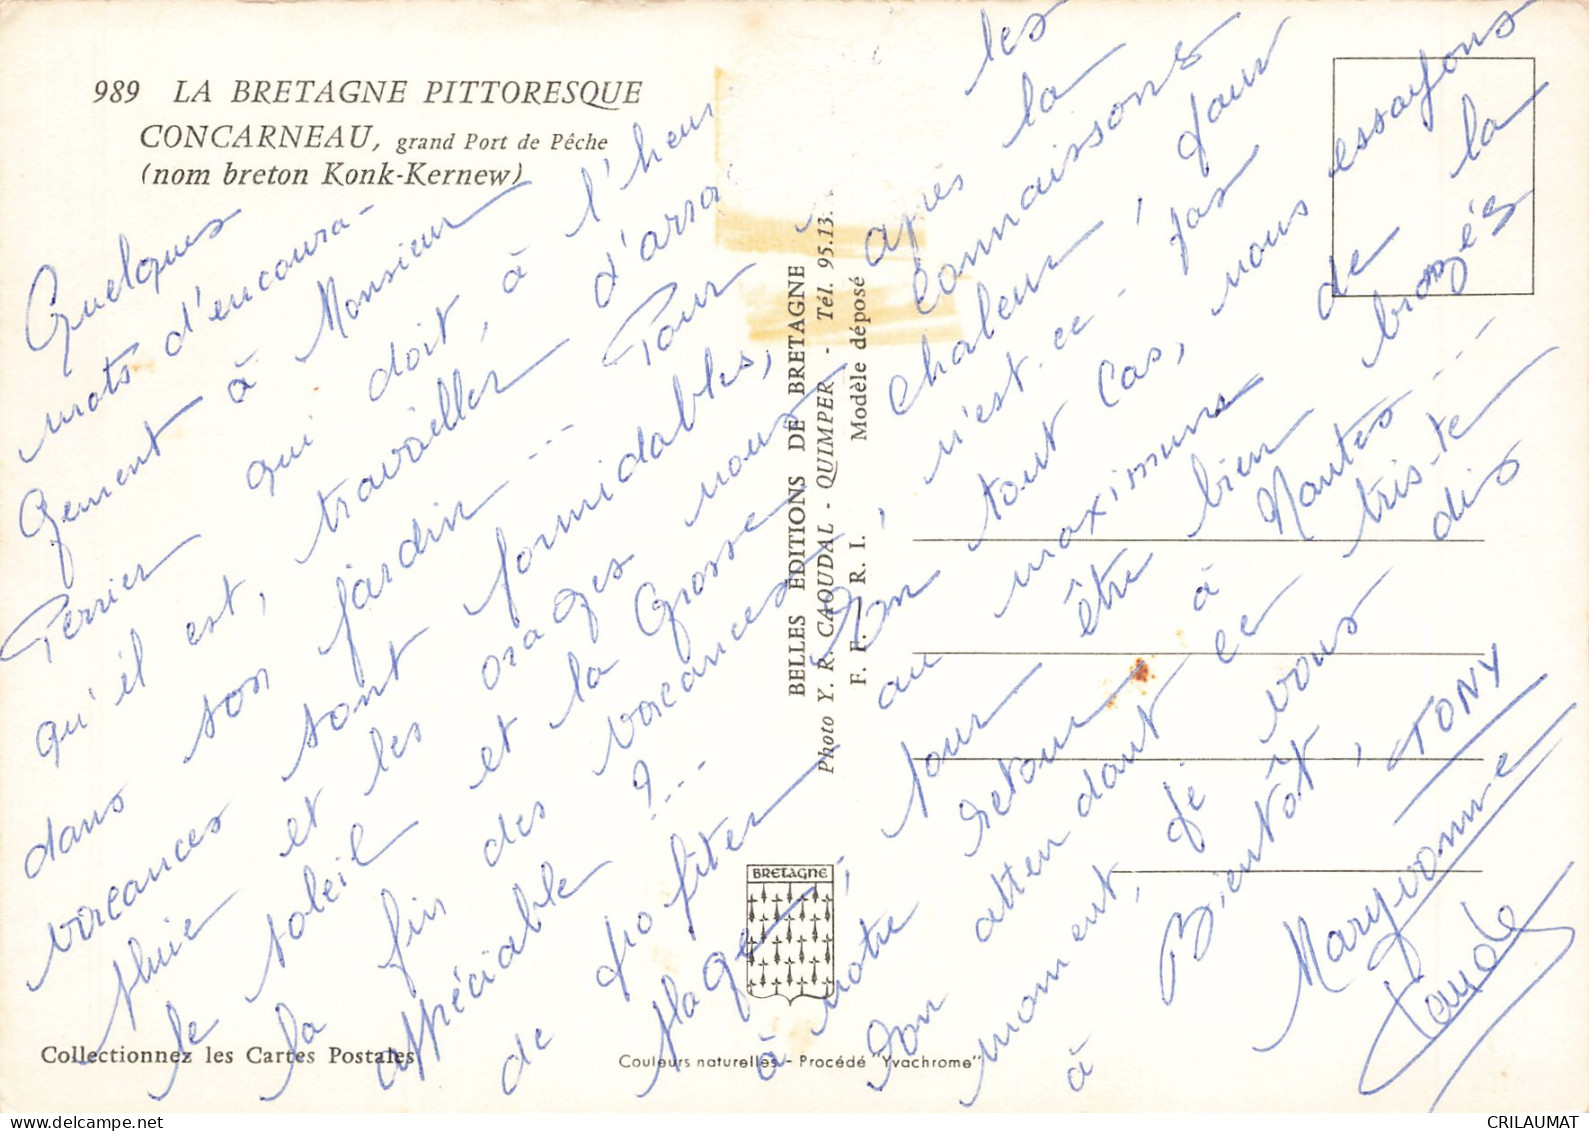 989 LA BRETAGNE PITTORESQUE
CONCARNEAU, grand Port de Pêche
(nom breton Konk-Kernew)
Quelques
mots d'encoura-
gement à Monsieur
Perrier qui doit, à l'heur
qu'il est, travailler d'arra
dans son jardin... Pour les
vacances sont formidables, après la
pluie et les orages nous connaissons
le soleil et la grosse chaleur, pour
la fin des vacances, n'est-ce-pas
appréciable ?... En tout cas, nous essayons
de profiter au maximum de la
plage, pour être bien bronzés
à notre retour à Nantes...
En attendant ce tris-te
moment, je vous dis
à Bientôt, TONY
Maryvonne
BELLES ÉDITIONS DE BRETAGNE
Photo Y. R. CAOUDAL - QUIMPER - Tél. 95.13.
F. F. / R. I. Modèle déposé
BRETAGNE
Collectionnez les Cartes Postales
Couleurs naturelles - Procédé "Yvachrome"
CRILAUMAT